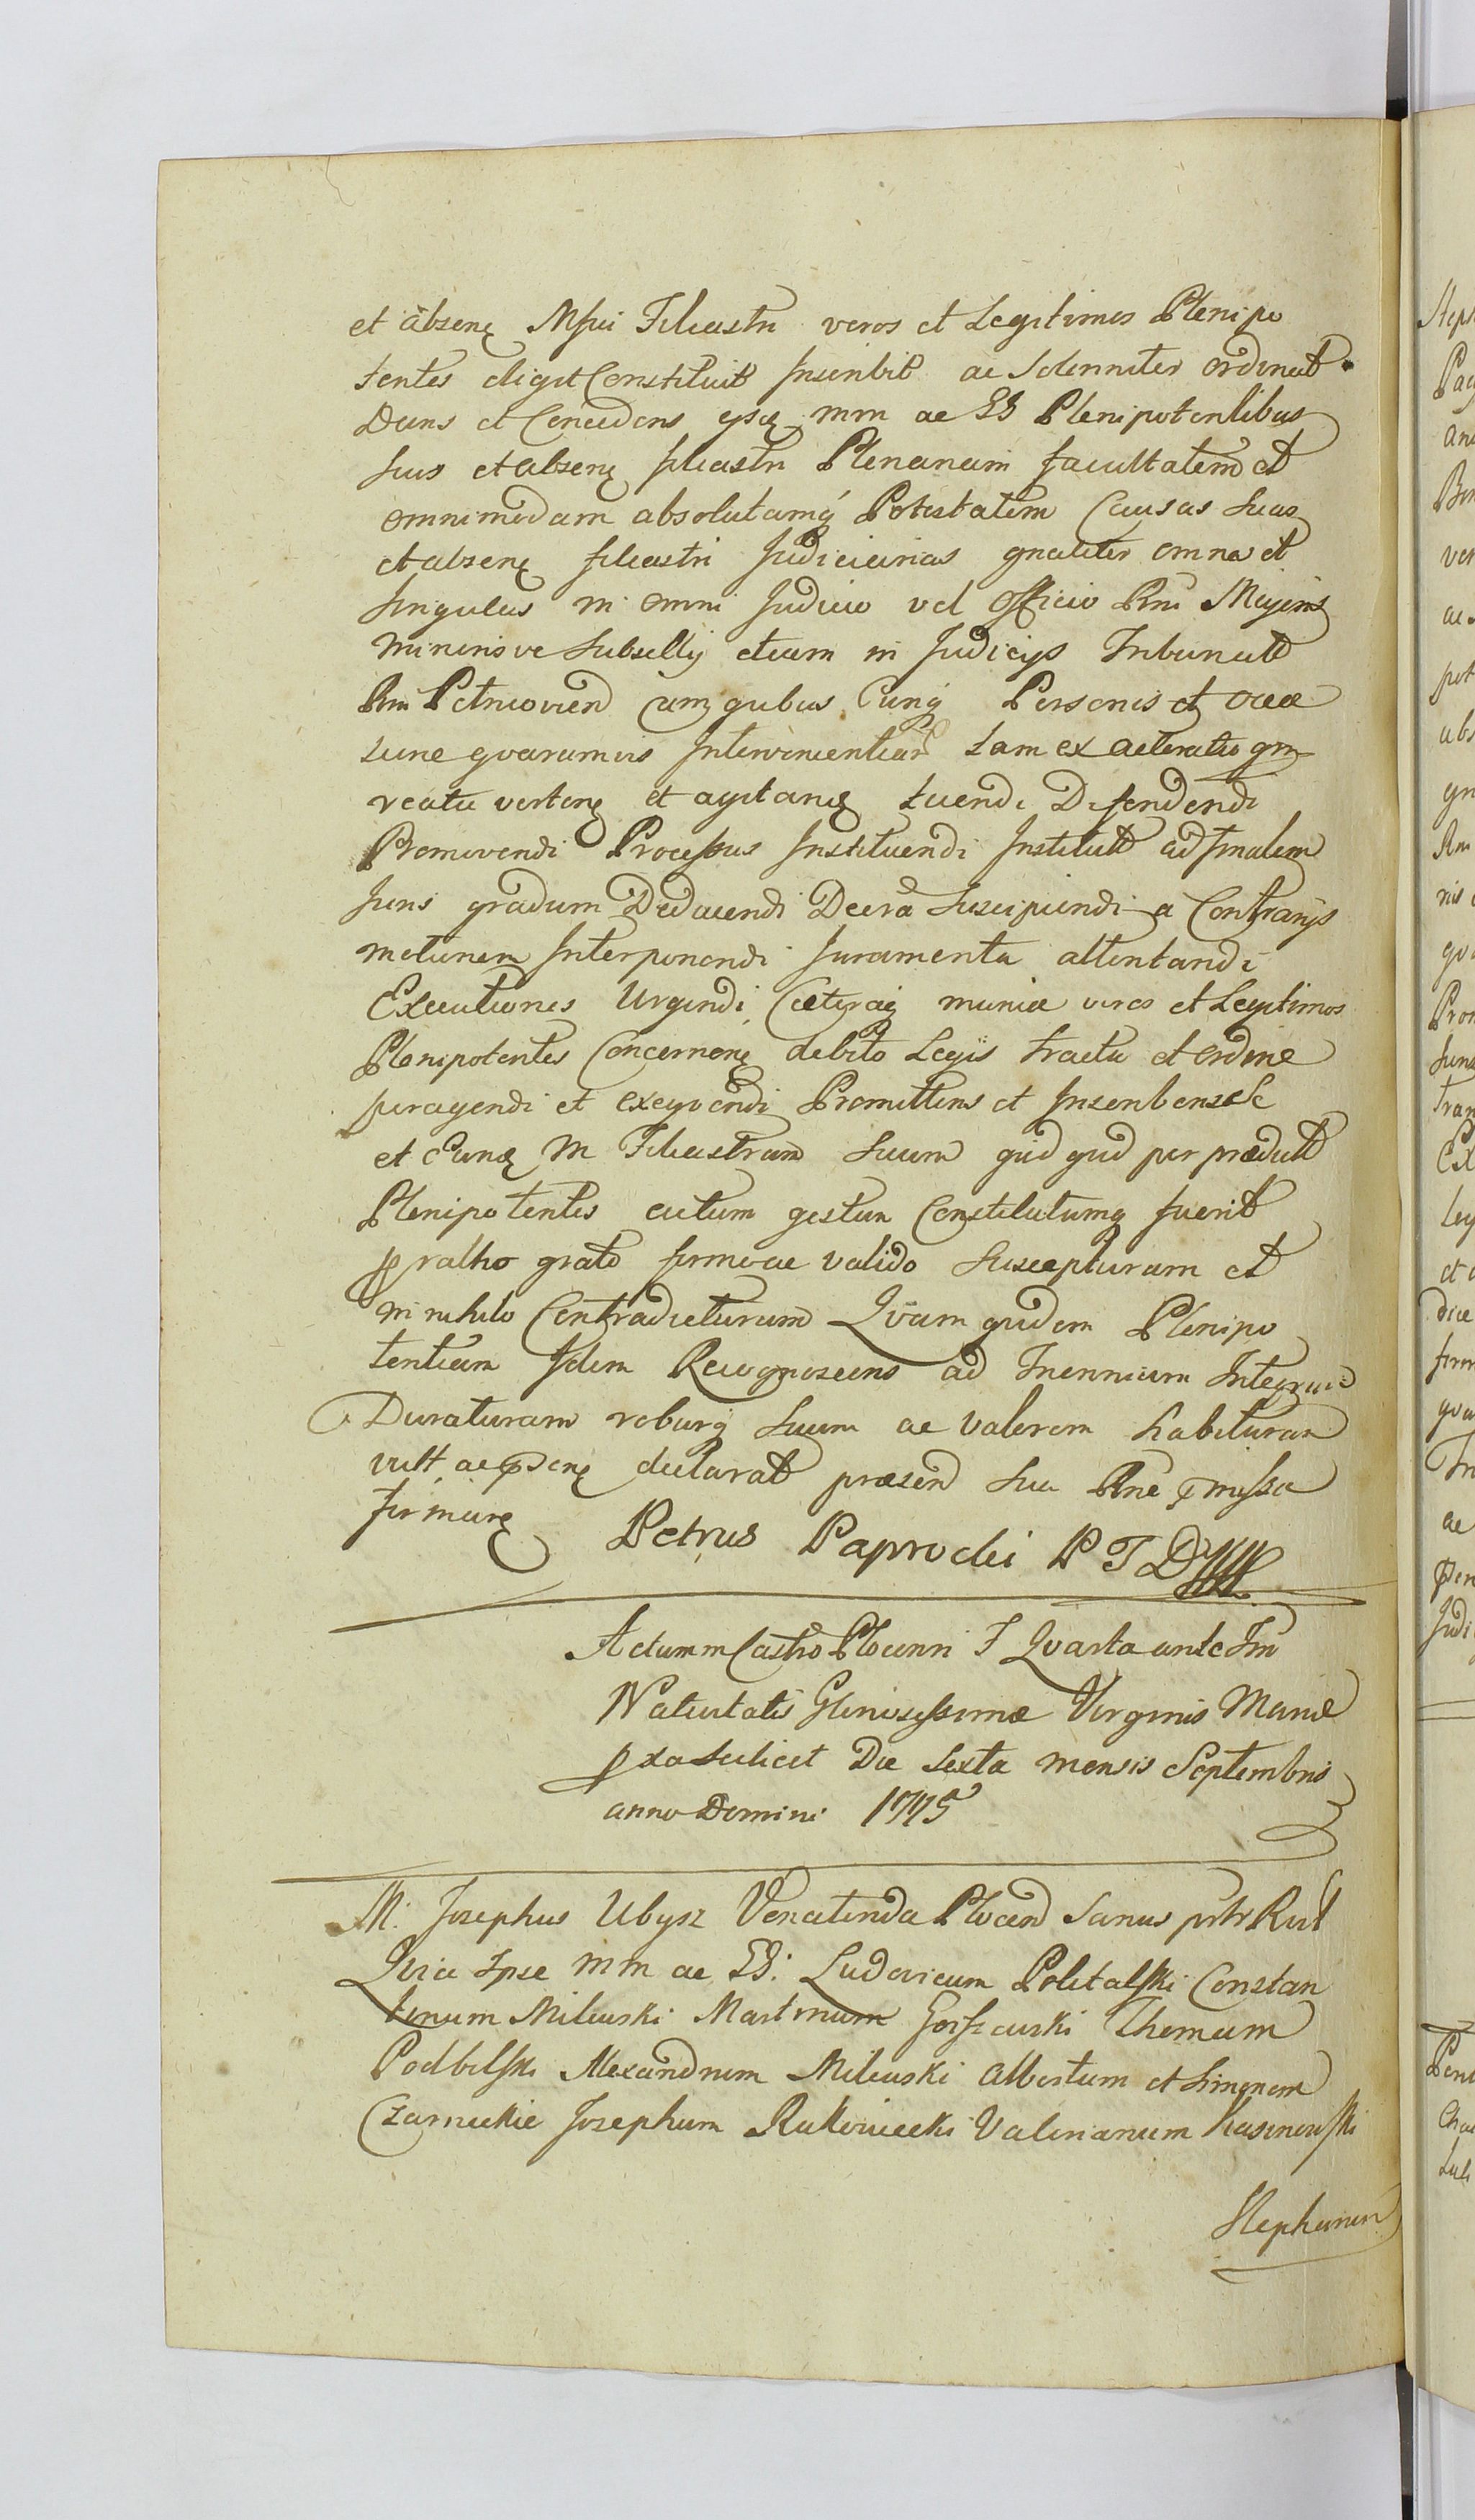 et absenę Msui Filiastri veros et Legitimos Plenipo
tentes eligit Constituit Inscribit ac Solenniter ordinat
Dans et Concedens ysdę mm ac GG Plenipotentibus
suis et absenę filiastri Plenanam facultatem et
omnimodam absolutamq́ Potestatem Causas suas
et absenę filiastri Judiciarias gnaliter omnes et
singulas in omni Judicio vel officio Rni Majoris
minorisve Subsellij etiam in Judicijs Tribunalt
Rni Petricovien cum quibus cunq́ Personis et occa
sione qvarumvis Intervenientiar tam ex actoratu qm
reatu vertenę et agitanę tuendi Defendendi
Promovendi Processus Instituendi Institutt ad finalem
Juris gradum Deducendi Decra Suscipiendi a Contrarijs
motionem Interponendi Juramenta attentandi
Executiones Urgendi Cæteraq́ munia veros et Legitimos
Plenipotentes Concernenę debito Legis tractu et ordine
peragendi et exeqvendi Promittens et Inscribens Se
et eundę M Filiastrum Suum quid quid per prædictt
Plenipotentes actum gestum Constitutumq fuerit
p ratho grato firmo ac valido Suscepturum et
in nihilo Contradicturum Qvam quidem Plenipo
tentiam Idem Recognoscens ad Triennium Integrum
Duraturam roburq́ Suum ac Valorem habituram
vult ac declarat præsen sua Rne pmissa
firmanę Petrus Paprocki P T D
Actum in Castro Plocensi F Qvarta ante Fm
Nativitatis Gloriosissimæ Virginis Mariæ
pxa scilicet Die Sexta mensis Septembris
anno Domini 1775
M: Josephus Ubysz Venatorida Plocen Sanus Rcct
Qvia Ipse mm ac GG: Ludovicum Politalski Constan
tinum Milewski Martinum Gorszewski Thomam
Podbilski Alexandrum Milewski Albertum et Simonem
Czarneckie Josephum Rakowiecki Valerianum Kasinowski
Stephanum